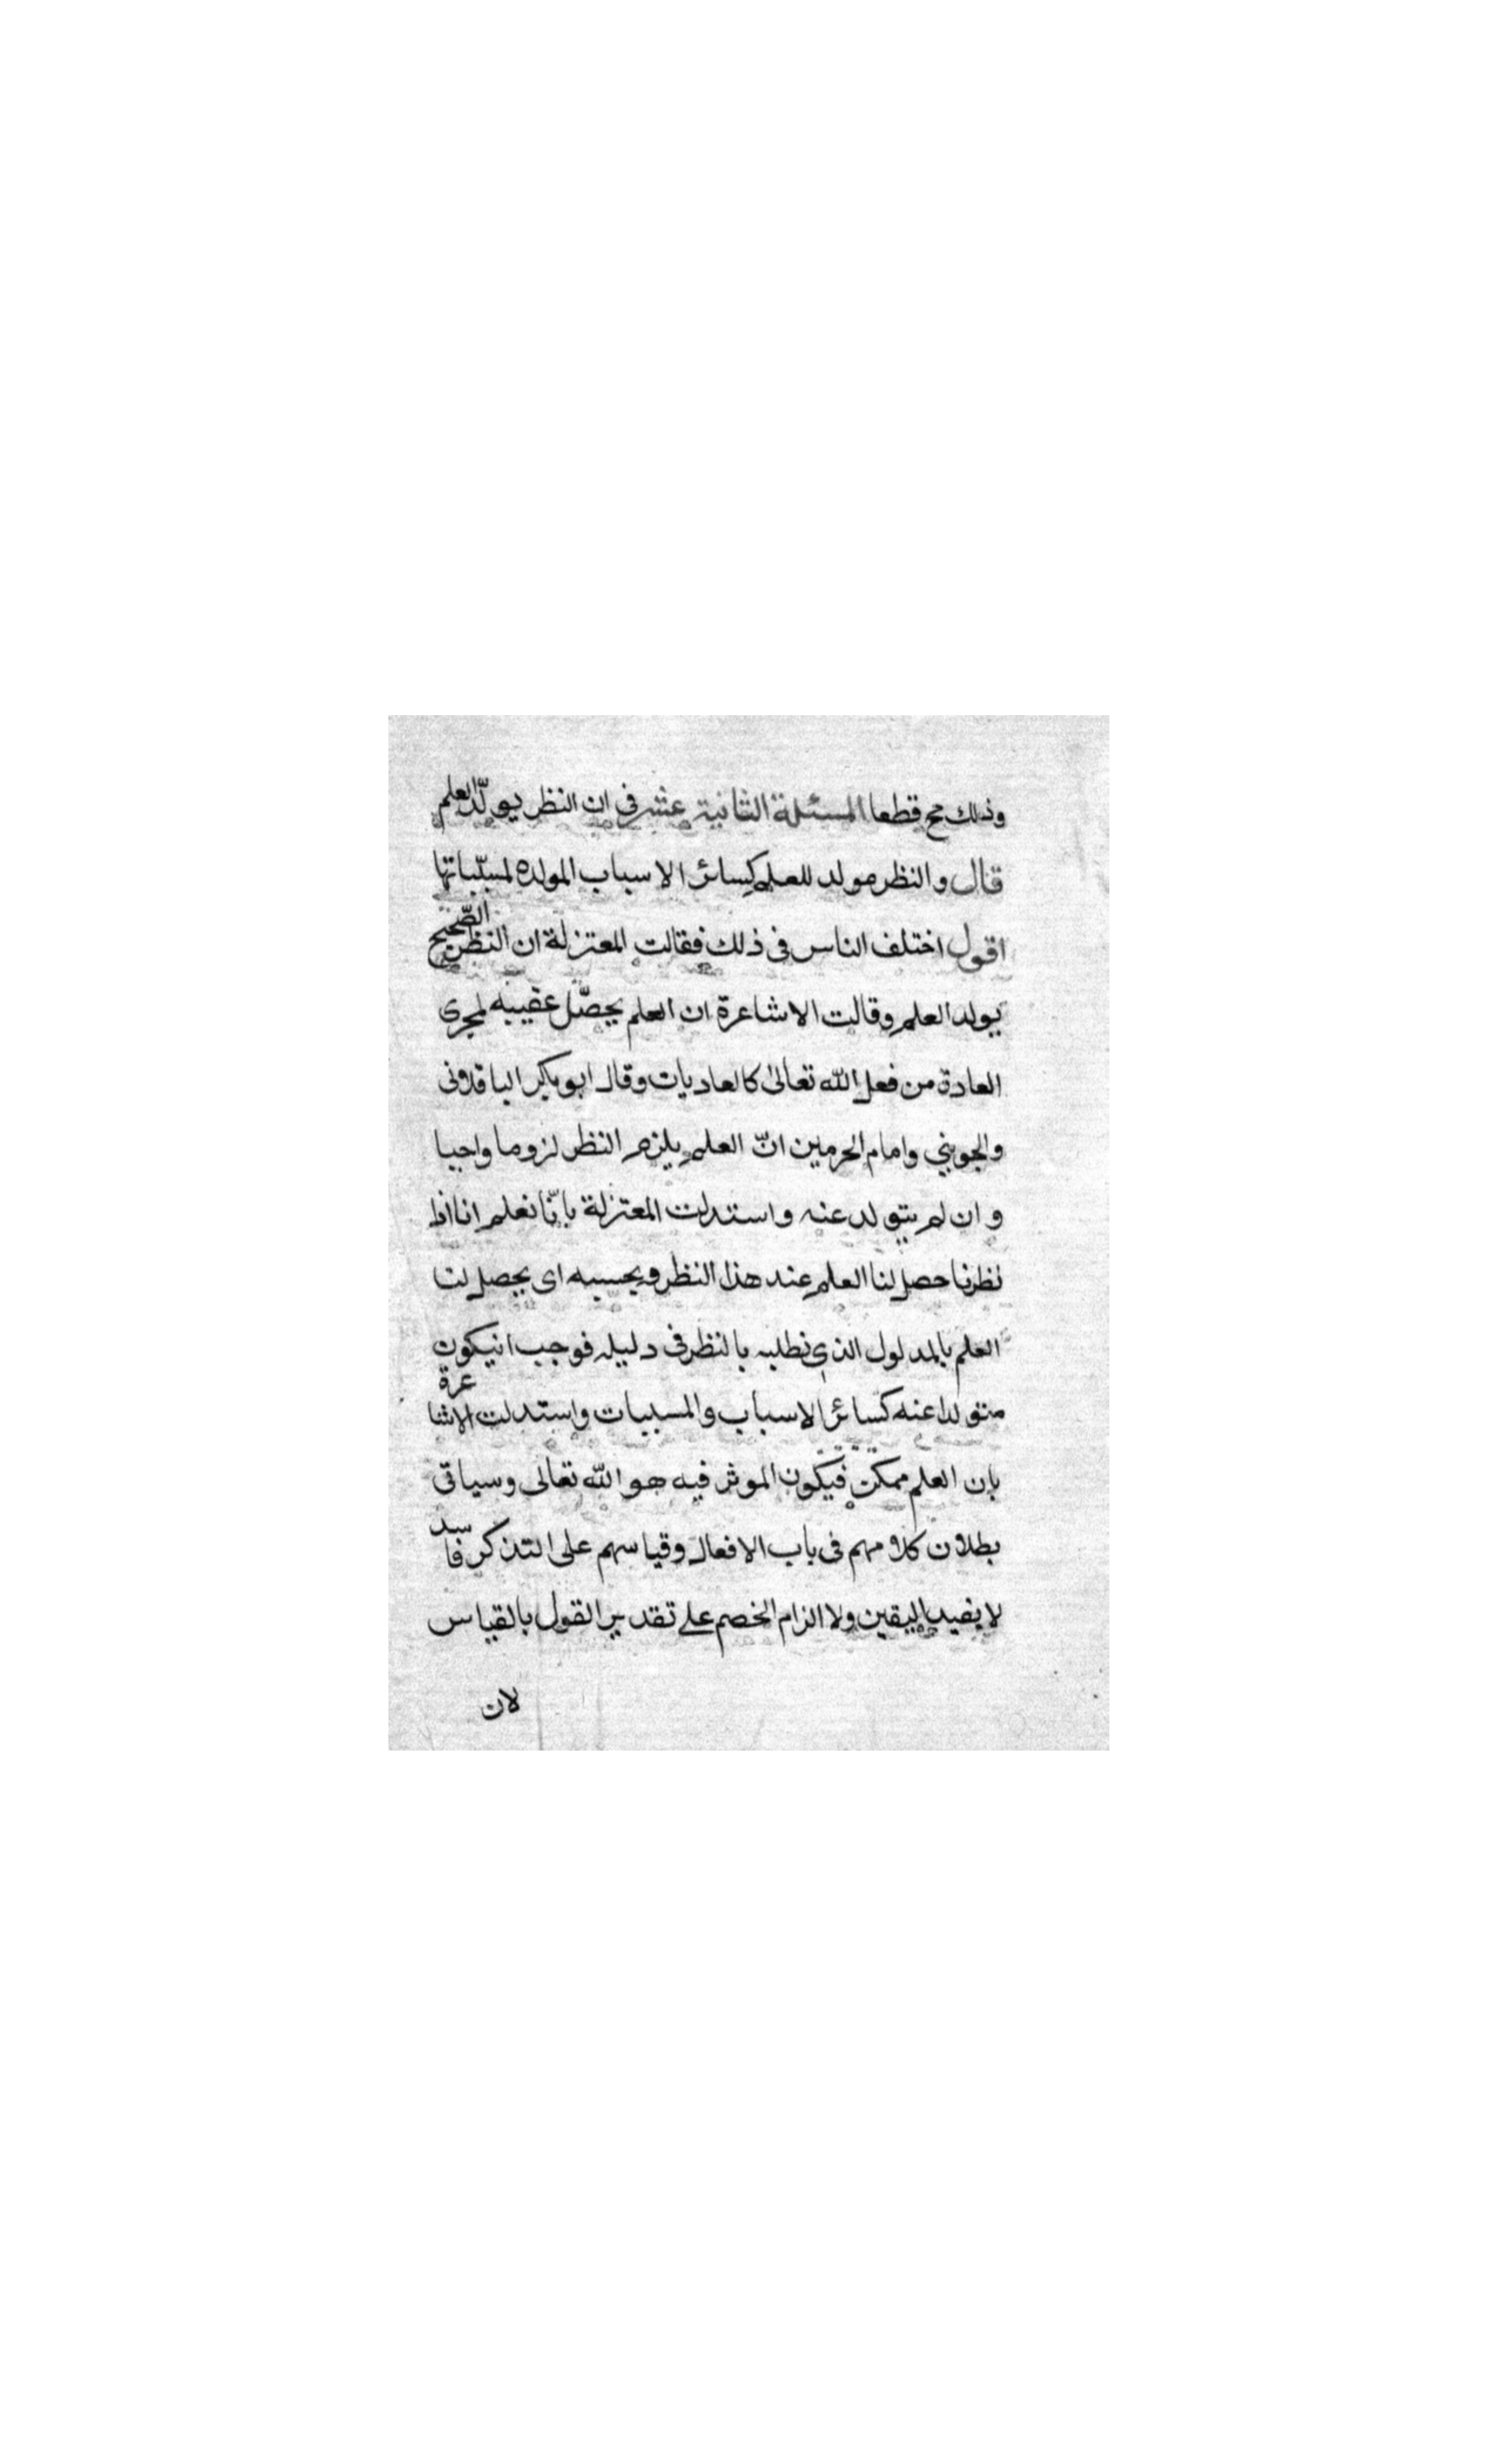 وذلك مح قطعا المسئلة الثانية عشر في ان النظر يولّد العلم
قال والنظر مولد للعلم كسائر الاسباب المولده لمسبّباتها
اقول اختلف الناس في ذلك فقالت المعتزلة ان النظر الصّحيح
يولد العلم وقالت الاشاعرة ان العلم يحصّل عقيبه لمجرى
العادة من فعل الله تعالى كالعاديات وقال ابو بكر الباقلاني
والجويني وامام الحرمين انّ العلم يلزم النظر لزوما واجبا
وان لم يتولد عنه واستدلت المعتزلة بانّا نعلم انا اذا
نظرنا حصل لنا العلم عند هذا النظر وبحسبه اى يحصل لنا
العلم بالمدلول الذى نطلبه بالنظر فى دليله فوجب انيكون
متولدا عنه كسائر الاسباب والمسببات واستدلت الاشاعرة
بان العلم ممكن فيكون الموثر فيه هو الله تعالى وسياتى
بطلان كلامهم فى باب الافعال وقياسهم على التذكر فاسد
لا يفيد اليقين ولا الزام الخصم على تقدير القول بالقياس
لان